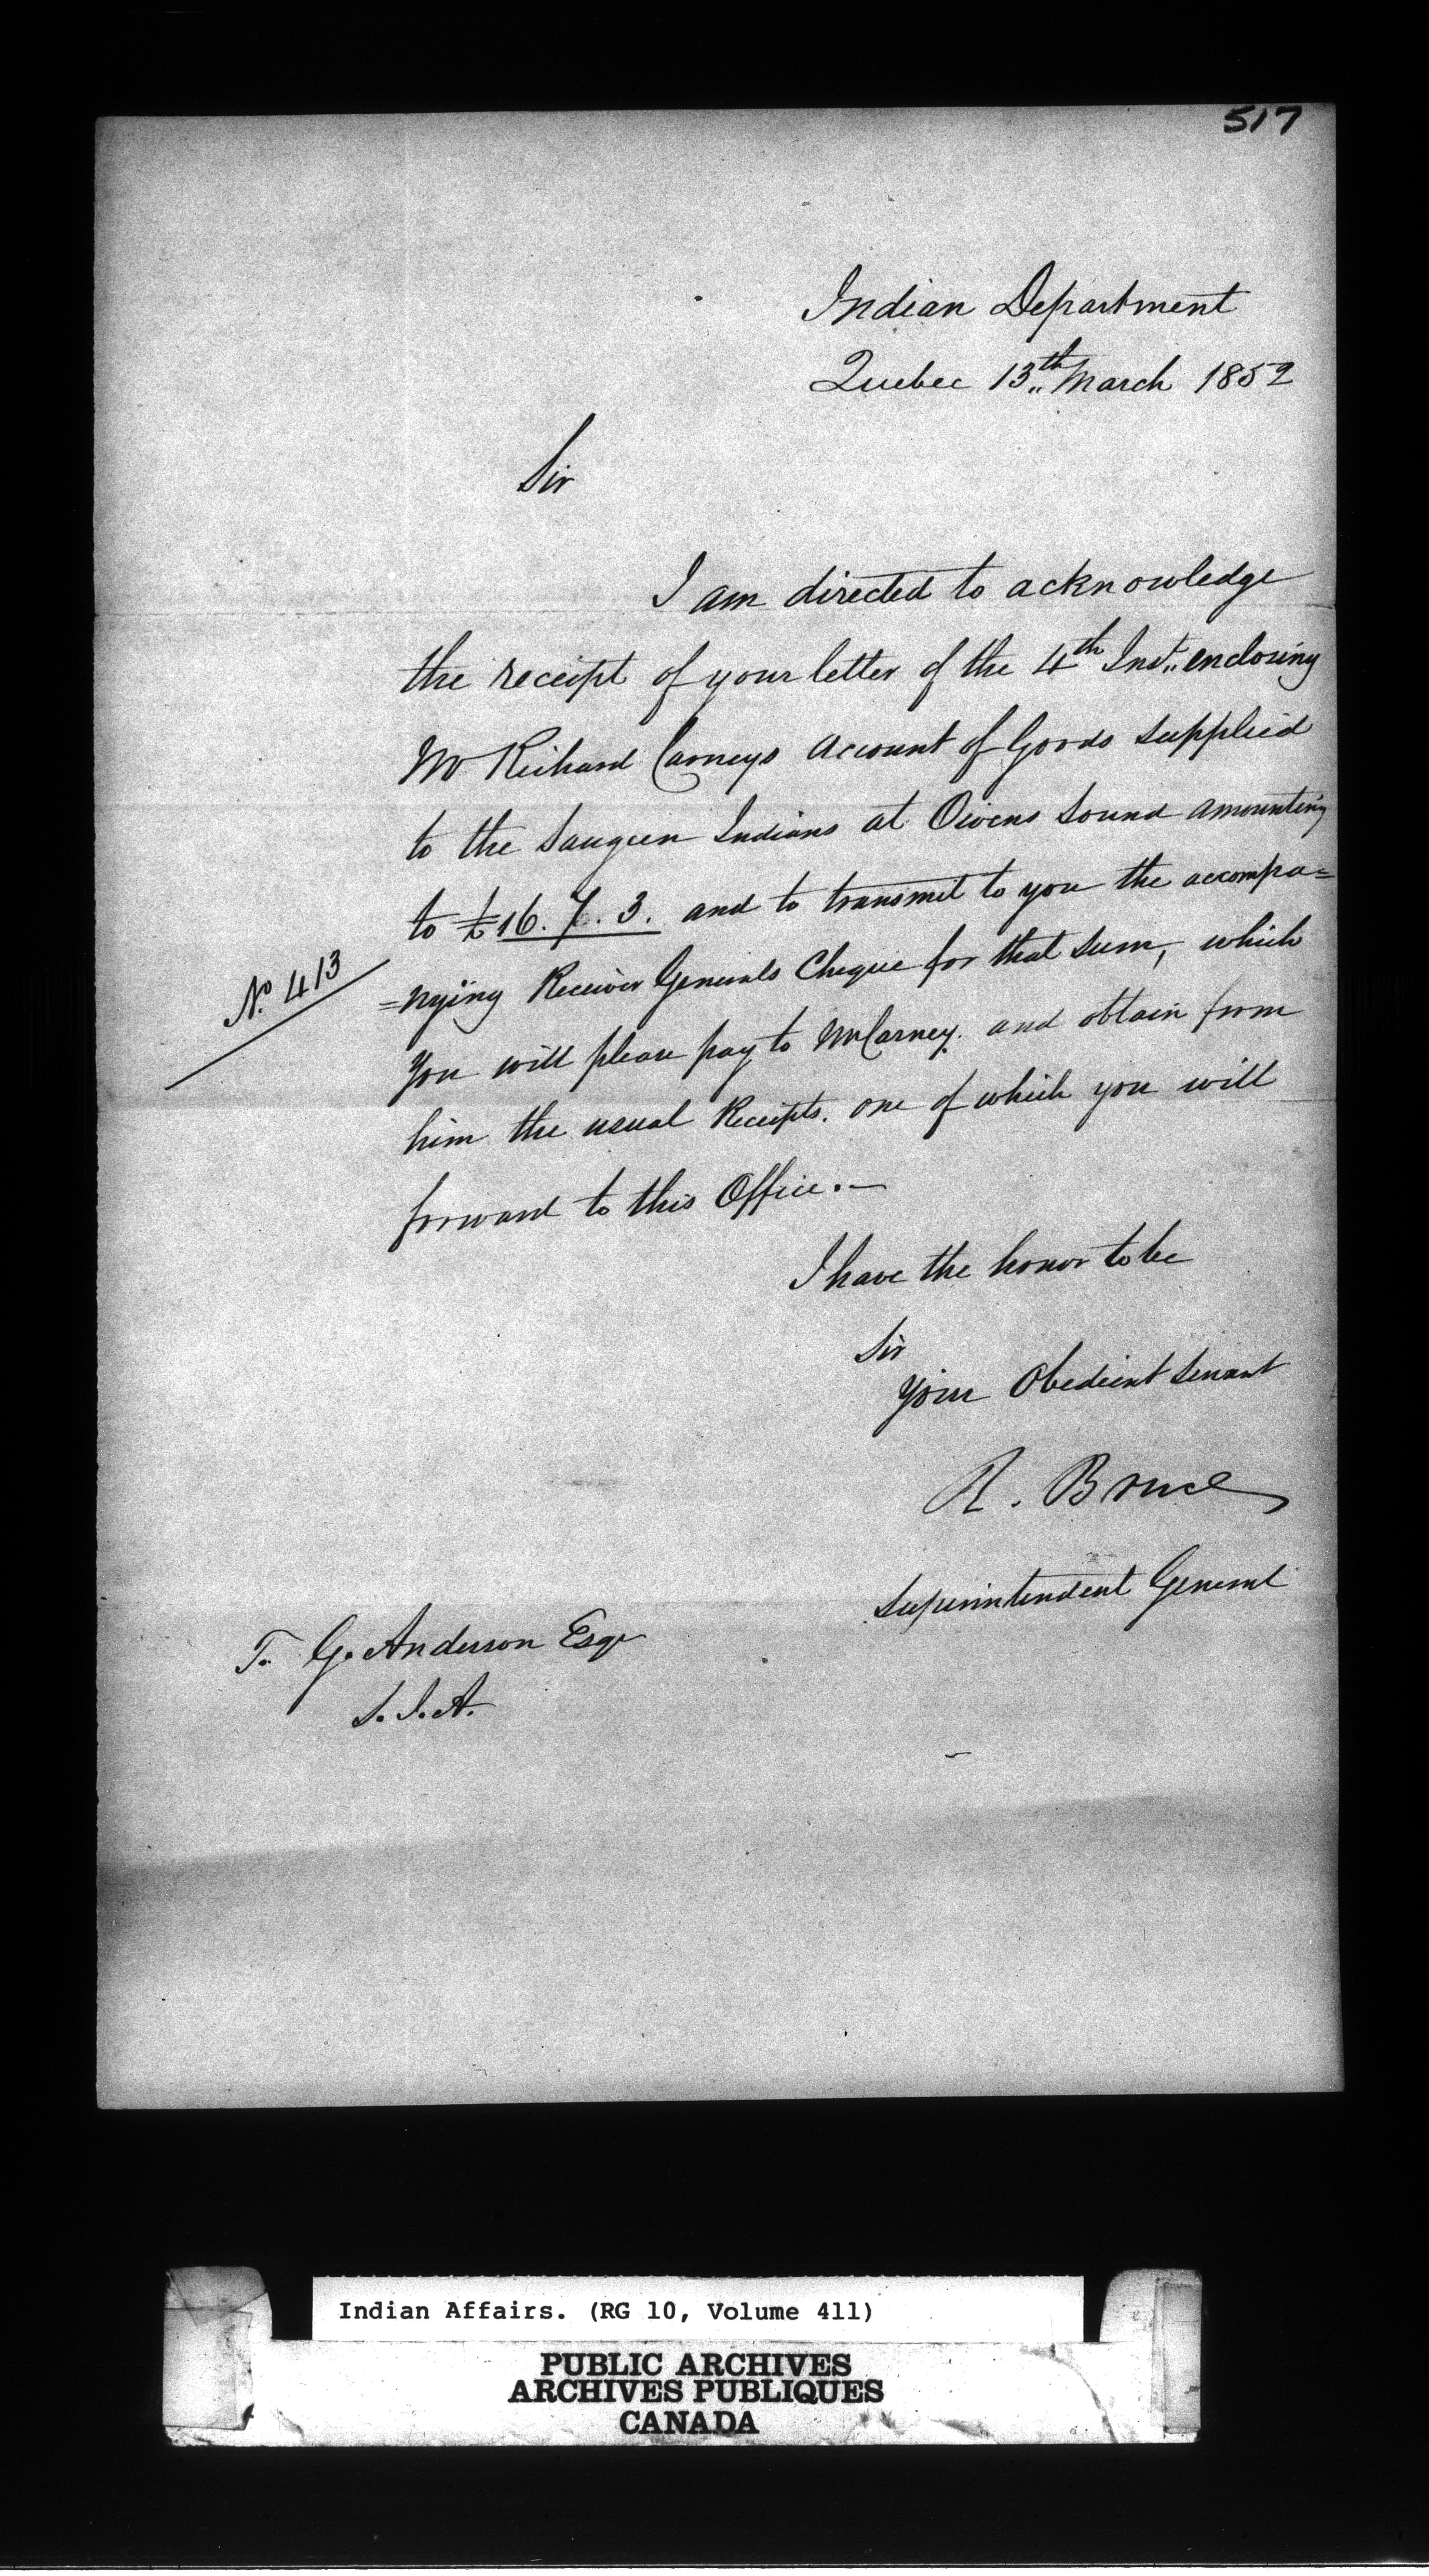 517
Indian Department
Quebec 13th March 1852
Sir
I am directed to acknowledge
the receipt of your letter of the 4th Inst. enclosing
Mr Richard Carneys account of Goods supplied
to the Saugeen Indians at Owens Sound amounting
to £16. 7. 3. and to transmit to you the accompa=
No. 413
=nying Receiver Generals Cheque for that sum, which
you will please pay to Mr Carney. and obtain from
him the usual Receipts. one of which you will
forward to this Office.—
I have the honor to be
Sir
Your Obedient Servant
R. Bruce
Superintendent General
T. G. Anderson Esqr
S.I.A.
Indian Affairs. (RG 10, Volume 411)
PUBLIC ARCHIVES
ARCHIVES PUBLIQUES
CANADA